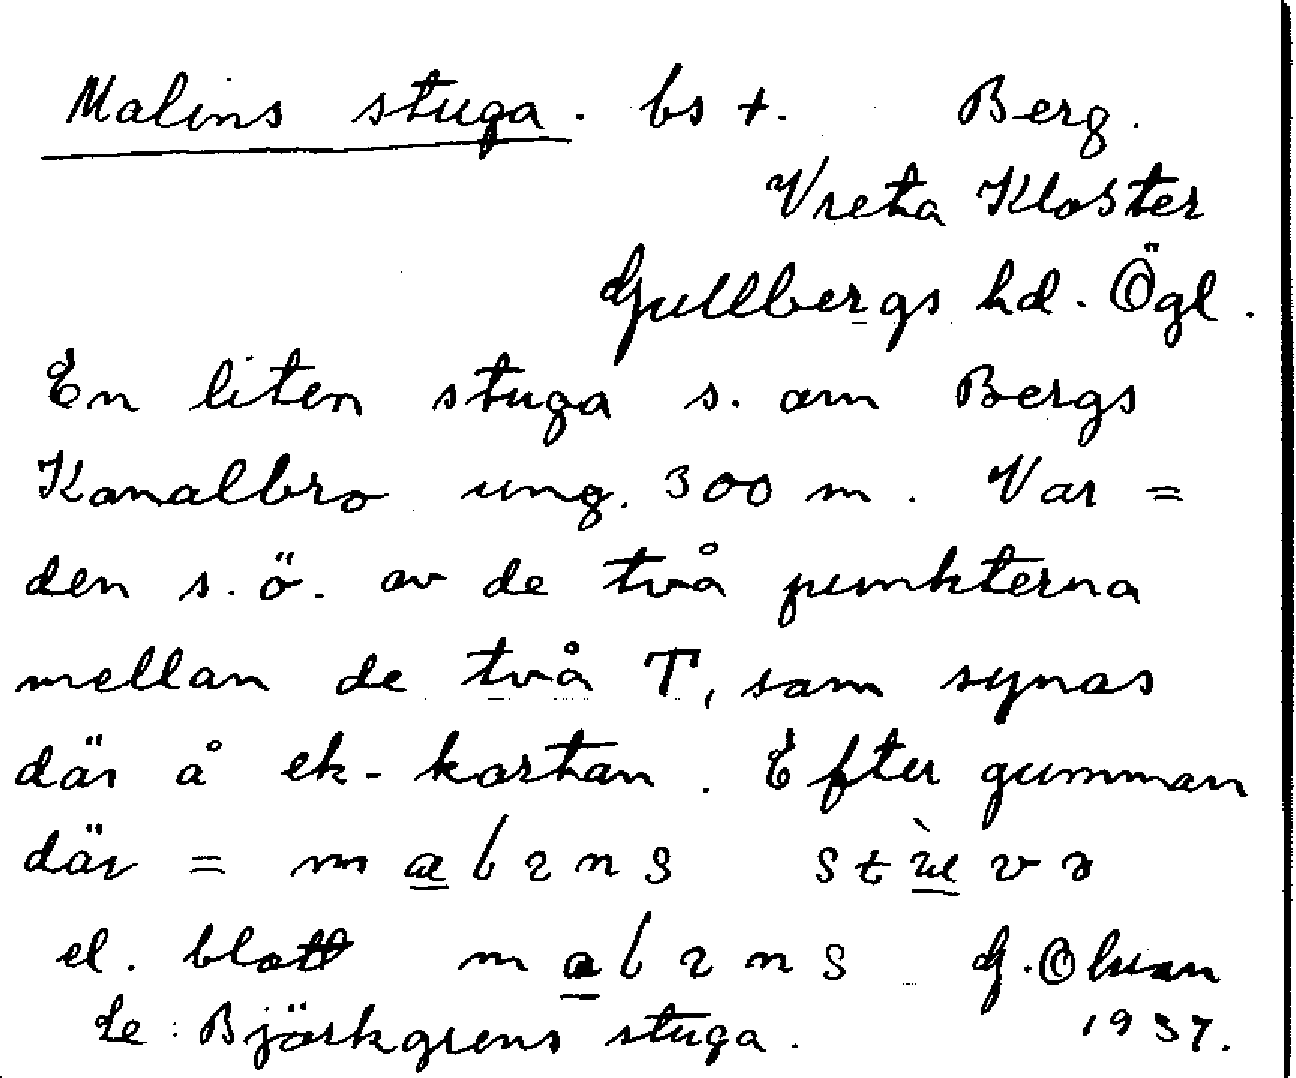 Malins stuga. bs +. Berg.
Vreta Kloster
Gullbergs hd. Ögl.
En liten stuga s. om Bergs
Kanalbro ung. 300 m. Var =
den s.ö. av de två punkterna
mellan de två T, som synas
där å ek-kartan. Efter gumman
där =
el. blott G. Olson
Se: Björkgrens stuga. 1937.